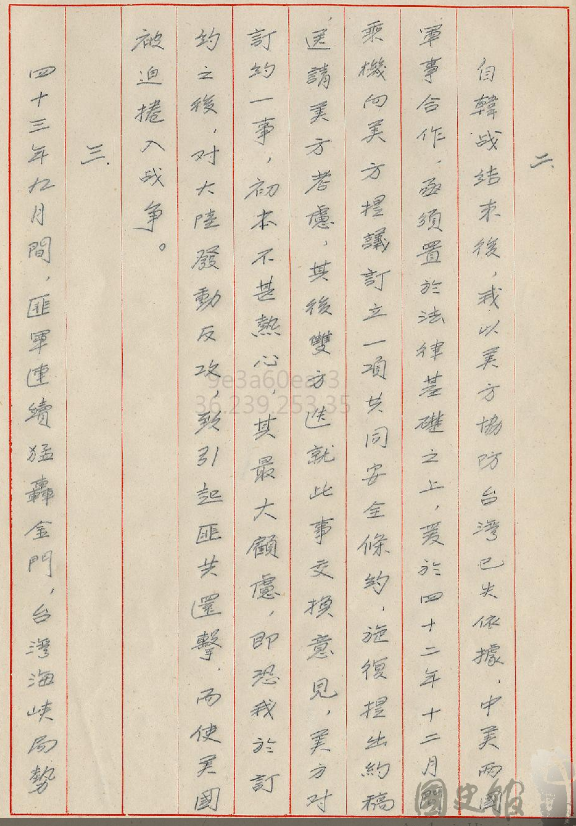 二、
自韓战结束後，我以美方協防台灣已失依據，中美两國
軍事合作，亟須置於法律基礎之上，爰於四十二年十二月間
乘機向美方提議訂立一項共同安全條約，旋復提出約稿
送請美方考慮，其後雙方迭就此事交换意見，美方对
訂約一事，初本不甚熱心，其最大顧慮，即恐我於訂
約之後，对大陸發動反攻，致引起匪共還擊，而使美國
被迫捲入战争。
三、
四十三年九月間，匪軍連續猛轟金門，台灣海峽局勢
9e3a60ea
239.253.35
國史館